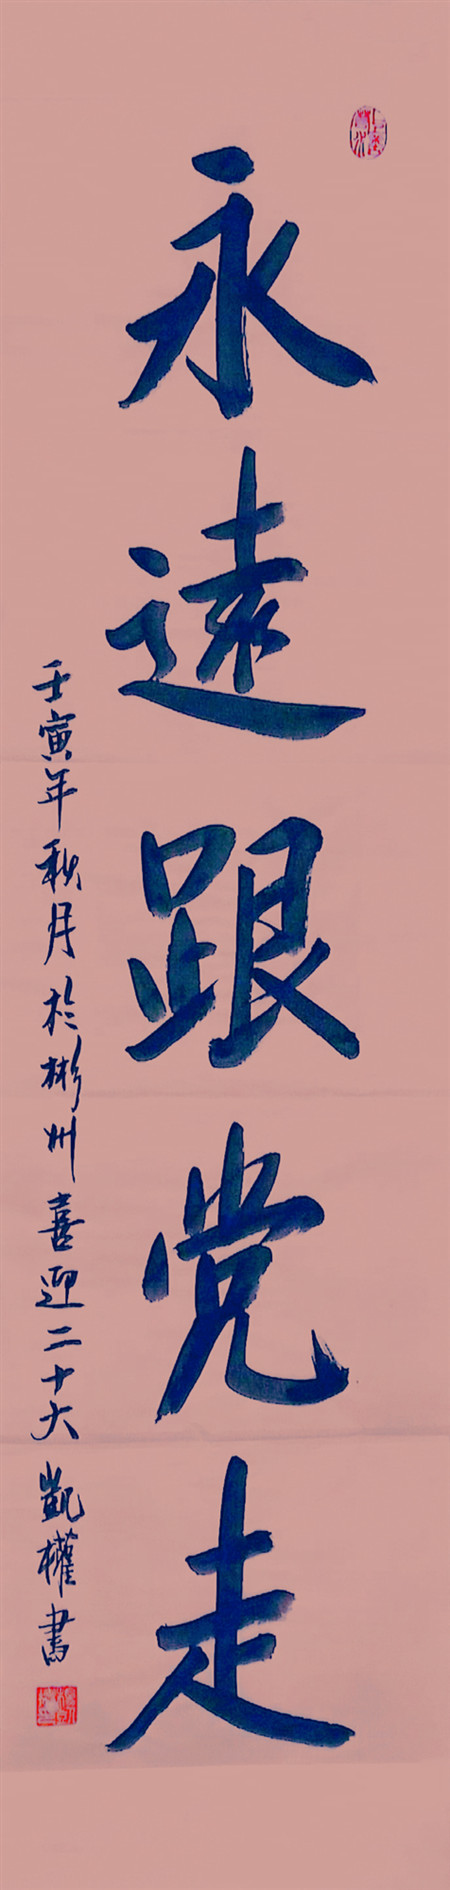 永遠跟党走
壬寅年秋月於彬州喜迎二十大 凱權書